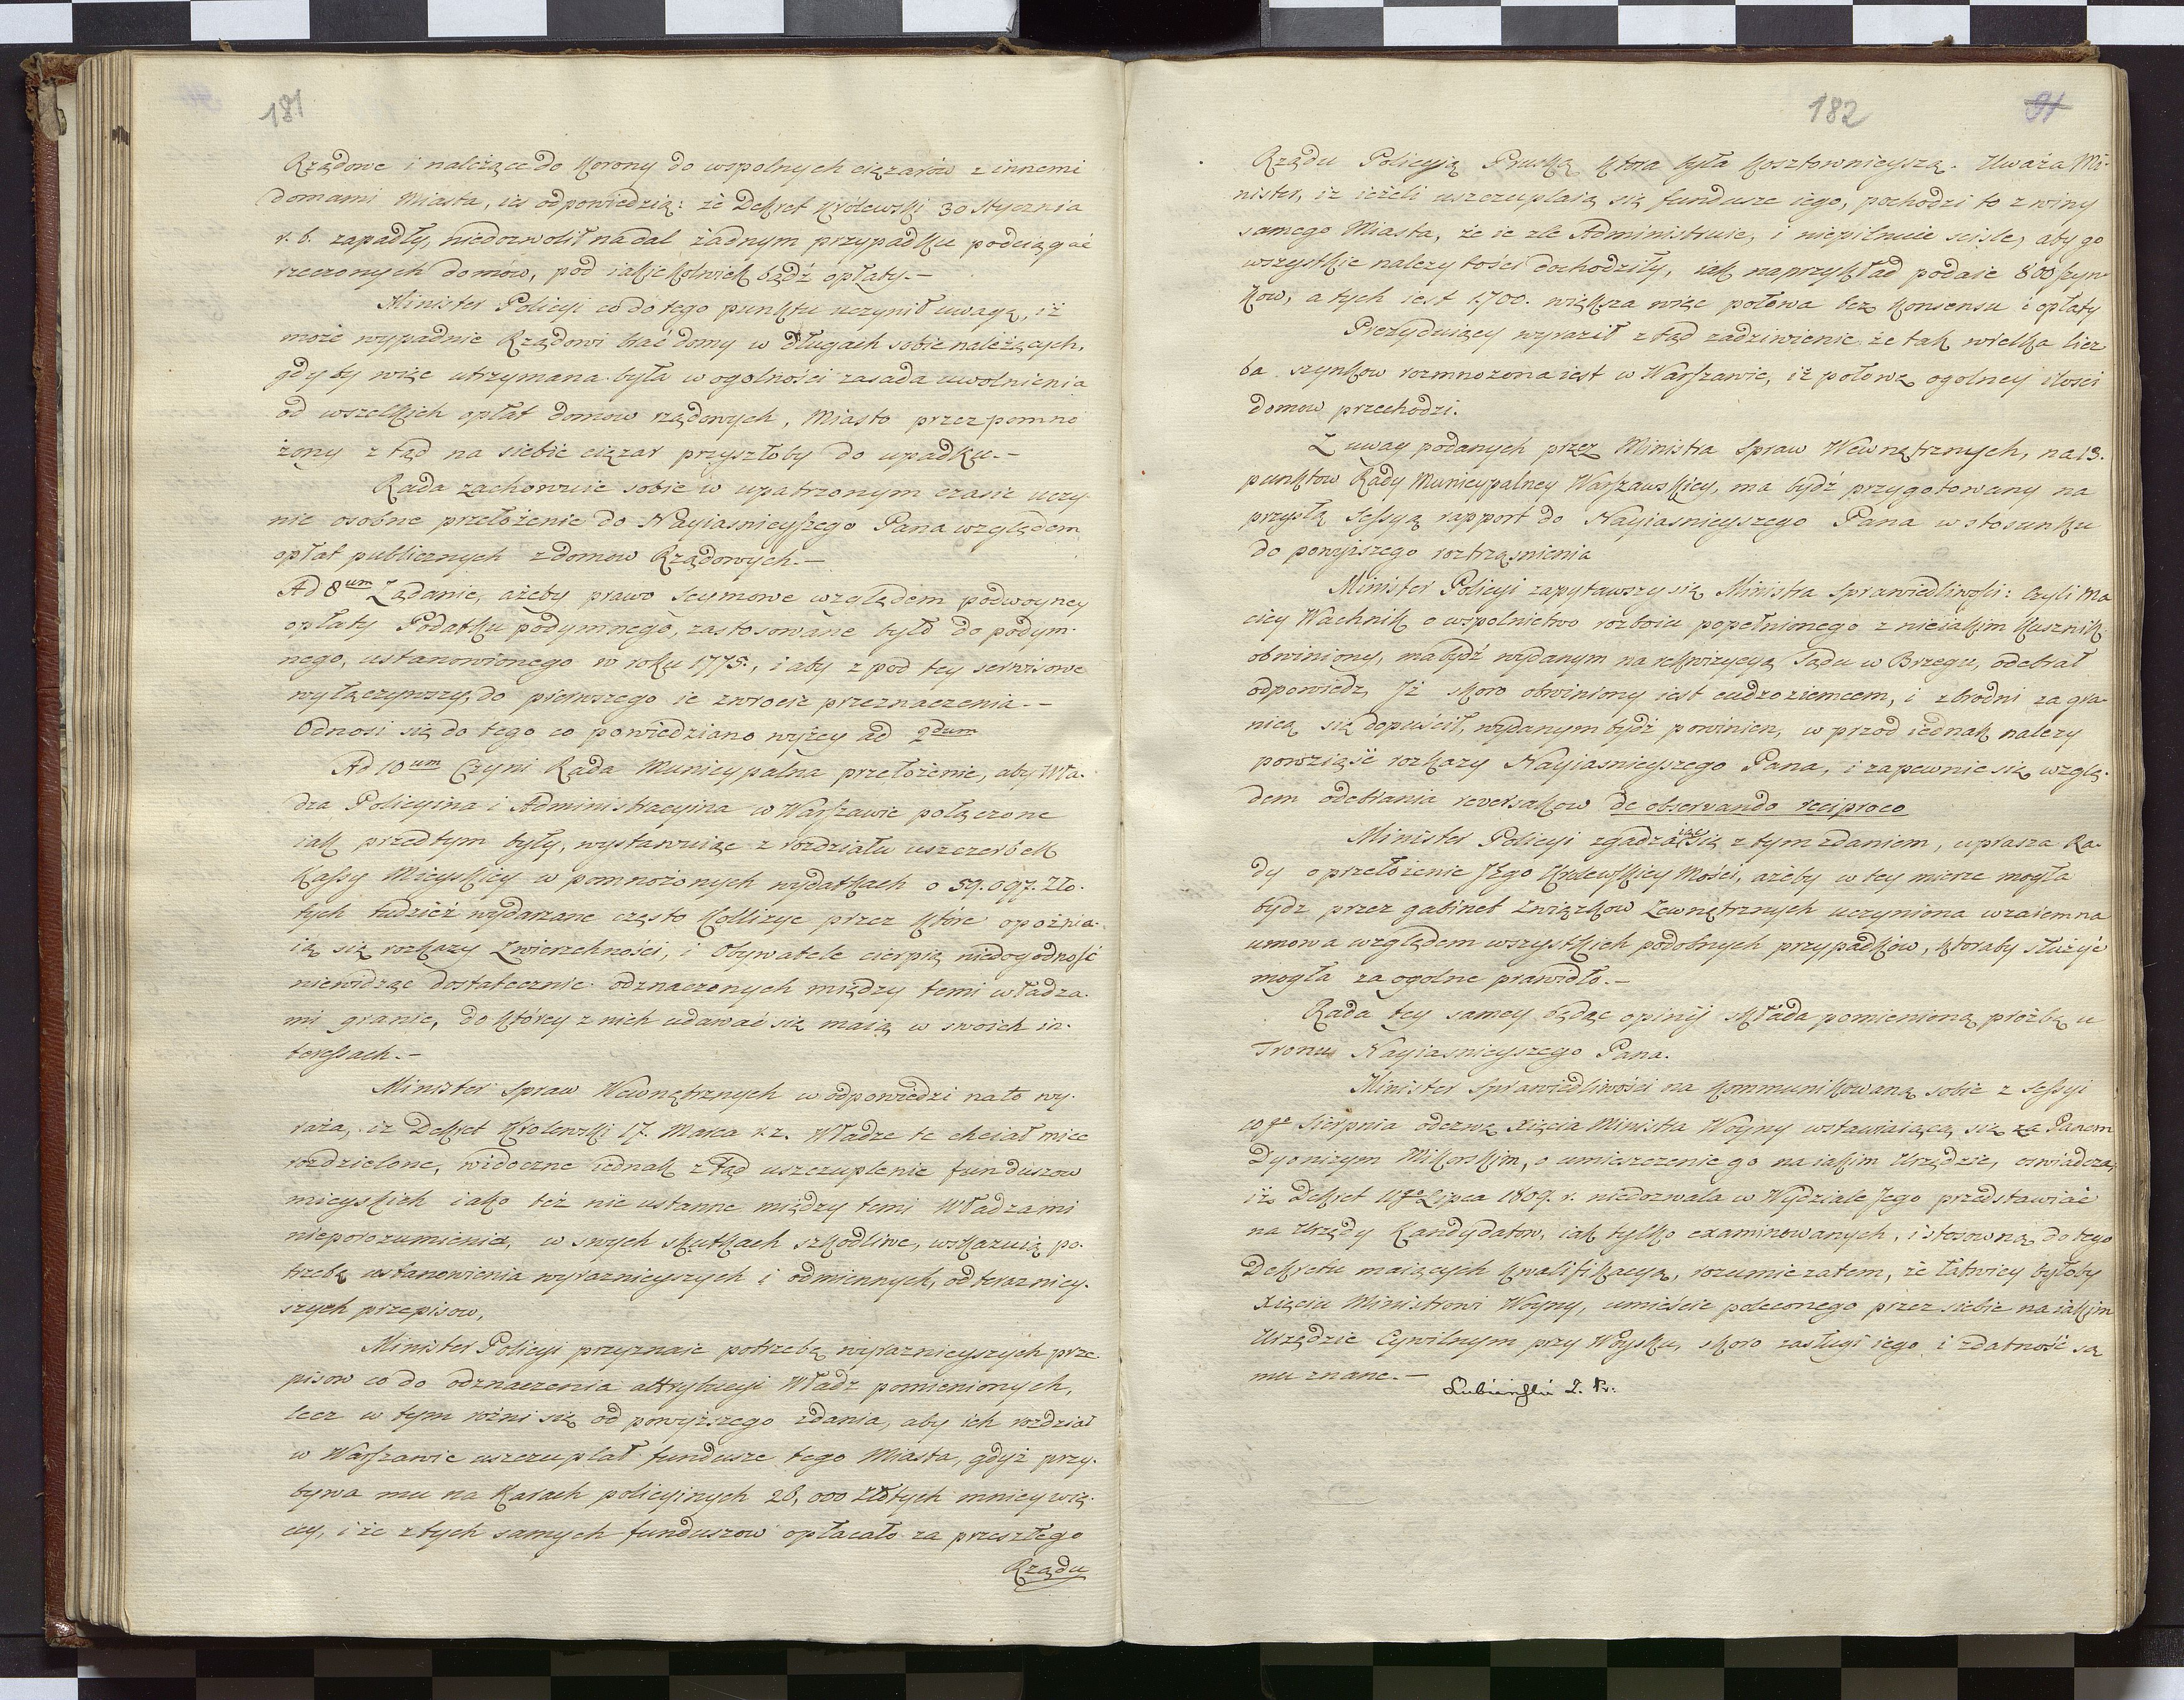 181
Rządowe i należące do Korony do wspolnych ciężarów z innemi
domami Miasta, iest odpowiedzią: że Dekret Królewski 30 Stycznia
r. b. zapadły, niedozwolił nadal żadnym przypadku podciągać
rzeczonych domow, pod iakiekolwiek bądź opłaty.–
Minister Policyi co do tego punktu uczynił uwagę, iż
może wypadnie Rządowi brać domy w długach sobie należących,
gdyby więc utrzymana była w ogolności zasada uwolnienia
od wszelkich opłat domow rządowych, Miasto przez pomno
żony ztąd na siebie ciężar przyszłoby do upadku.–
Rada zachowuie sobie w upatrzonym czasie uczy
nić osobne przełożenie do Nayiasnieyszego Pana względem
opłat publicznych z domow Rządowych.–
Ad 8um Żądanie, ażeby prawo Seymowe względem podwoyney
opłaty Podatku podymnego, zastosowane było do podym-
nego, ustanowionego w roku 1775., i aby z pod tey serwisowe
wyłączywszy, do pierwszego ie zwrocić przeznaczenia.–
Odnosi się do tego co powiedziano wyżey ad 2dum
Ad 10um Czyni Rada Municypalna przełożenie, aby Wła-
dza Policyina i Administracyina w Warszawie połączone
iak przedtym były, wystawuiąc z rozdziału uszczerbek
Kassy Mieyskiey w pomnożonych wydatkach o 59.097. Zło-
tych tudzież wydarzane często Kollizye przez które opoźnia-
ią się rozkazy Zwierzchności, i Obywatele cierpią niedogodność
niewidząc dostatecznie odznaczonych między temi władza-
mi granic, do którey z nich udawać się maią w swoich in-
teressach.–
Minister Spraw Wewnętrznych w odpowiedzi na to wy-
raża, iż Dekret Krolewski 17. Marca r. z. Władze te chciał mieć
rozdzielone, widoczne iednak ztąd uszczuplenie funduszow
mieyskich iako też nie ustanne między temi Władzami
nieporozumienia, w swych skutkach szkodliwe, wskazuią po-
trzebę ustanowienia wyraznieyszych i odmiennych, od terazniey-
szych przepisow,
Minister Policyi przyznaie potrzebę wyraznieyszych prze
pisow co do odznaczenia attrybucyi Władz pomienionych,
lecz w tym rożni się od powyższego zdania, aby ich rozdział
w Warszawie uszczuplał fundusze tego Miasta, gdyż przy-
bywa mu na Karach policyinych 28,000 Złotych mniey wię-
cey, i że z tych samych funduszow opłacało za przeszłego
Rządu
182
91
Rządu Policyją Pruską ktora była kosztownieyszą. Uważa Mi-
nister, iż ieżeli uszczuplaią się fundusze iego, pochodzi to z winy
samego Miasta, że ie zle Administruie, i niepilnuie sciśle, aby go
wszystkie należytości dochodziły, iak naprzykład podaie 800 szyn-
kow, a tych iest 1.700. większa więc połowa bez konsensu i opłaty
Prezyduiący wyraził ztąd zadziwienie że tak wielka licz
ba szynkow rozmnożona iest w Warszawie, iż połowę ogolney ilości
domow przechodzi.
Z uwag podanych przez Ministra Spraw Wewnętrznych, na 13.
punktow Rady Municypalney Warszawskiey, ma bydź przygotowany na
przyszłą Sessyą rapport do Nayiasnieyszego Pana w stosunku
do powyższego roztrząśnienia
Minister Policyi zapytawszy się Ministra Sprawiedliwości: Czyli Ma
ciey Wachnik o wspolnictwo rozboiu popełnionego z nieiakim Kusznik
obwiniony, ma bydź wydanym na rekwizycyą Sądu w Brzegu, odebrał
odpowiedz, Iż skoro obwiniony iest cudzoziemcem, i zbrodni za gra-
nicą się dopuścił, wydanym bydź powinien, w przod iednak należy
powziąść rozkazy Nayiasnieyszego Pana, i zapewnić się wzglę-
dem odebrania reversałow de observando reciproco
Minister Policyi zgadzaiąc się z tym zdaniem, uprasza Ra-
dy o przełożenie JKgo Krolewskiey Mości, ażeby w tey mierze mogła
bydz przez gabinet Związkow Zewnętrznych uczyniona wzaiemna
umowa względem wszystkich podobnych przypadków, ktoraby służyć
mogła za ogolne prawidło.–
Rada tey samey będąc opinij składa pomienioną prożbę u
Tronu Nayiasnieyszego Pana.
Minister Sprawiedliwości na kommunikowaną sobie z Sessyi
10go Sierpnia odezwę Xięcia Ministra Woyny wstawiaiącą się za Panem
Dyonizym Mikorskim, o umieszczenie go na iakim Urzędzie, oswiadcza,
iż Dekret 11go Lipca 1809. r. niedozwala w Wydziale Jego przedstawiać
na Urzędy Kandydatow, iak tylko examinowanych, i stosowną do tego
Dekretu maiących kwalifikacyą, rozumie zatem, że łatwiey byłoby
Xięciu Ministrowi Woyny, umieście poleconego przez siebie na iakim
Urzędzie Cywilnym przy Woysku, skoro zasługi iego i zdatność są
mu znane.–
Lubieński